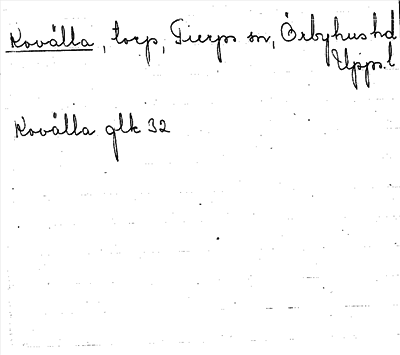 Kovälla, torp, Tierps sn, Örbyhus hd
Upps. l
Kovälla glk 32